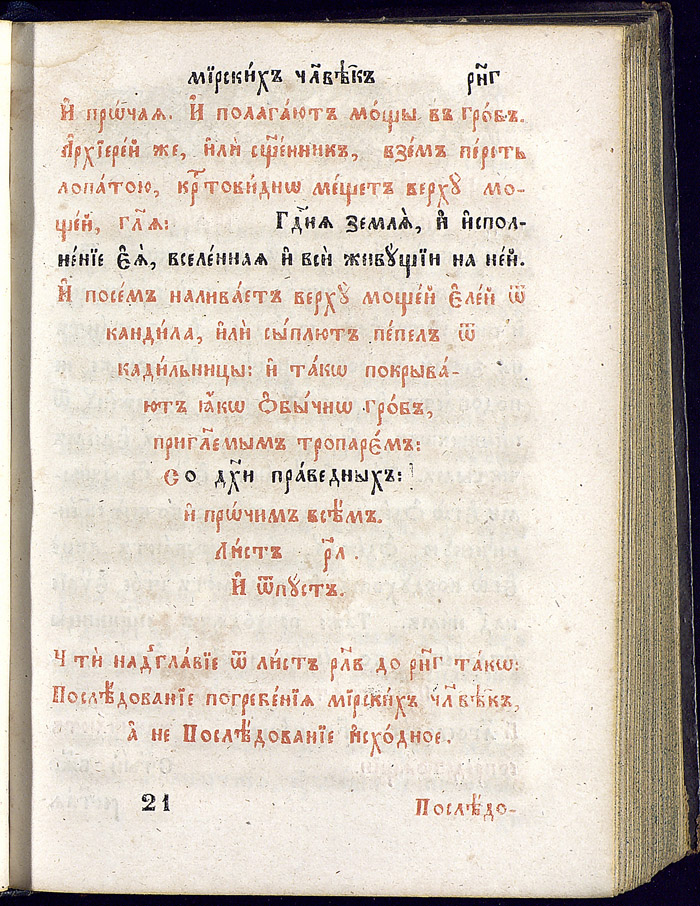 мі́рски́хъ чл҃вѣ̑къ рн҃г
И҆ прѡ́чаѧ. И҆ полага́ютъ мо́щы въ гро́бъ.
А҆рхїере́й же, и҆лѝ сщ҃е́нникъ, взе́мъ пе́рсть
лопа́тою, кр҃тови́днѡ ме́щетъ верхꙋ̀ мо-
ще́й, гл҃ѧ: Гдⷭ҇нѧ землѧ̀, и҆ и҆спол-
не́нїе є҆ѧ̀, вселе́ннаѧ и҆ всѝ живꙋ́щїи на не́й.
И҆ посе́мъ налива́етъ верхꙋ̀ моще́й є҆ле́й ѿ
канди́ла, и҆лѝ сы́плютъ пе́пелъ ѿ
кади́льницы: и҆ та́кѡ покрыва́-
ютъ ꙗ҆́кѡ ѻ҆бы́чнѡ гро́бъ,
пригл҃емымъ тропаре́мъ:
Со дꙋ́хи пра́ведныхъ:
и҆ прѡ́чимъ всѣ̑мъ.
Ли́стъ рл҃.
И҆ ѿпꙋ́стъ.
Чтѝ надгла́вїе ѿ ли́стъ рл҃в до рн҃г та́кѡ:
Послѣ́дованїе погребе́нїѧ мі́рски́хъ чл҃вѣ̑къ,
а҆ не Послѣ́дованїе и҆схо́дное.
21 Послѣ́до-